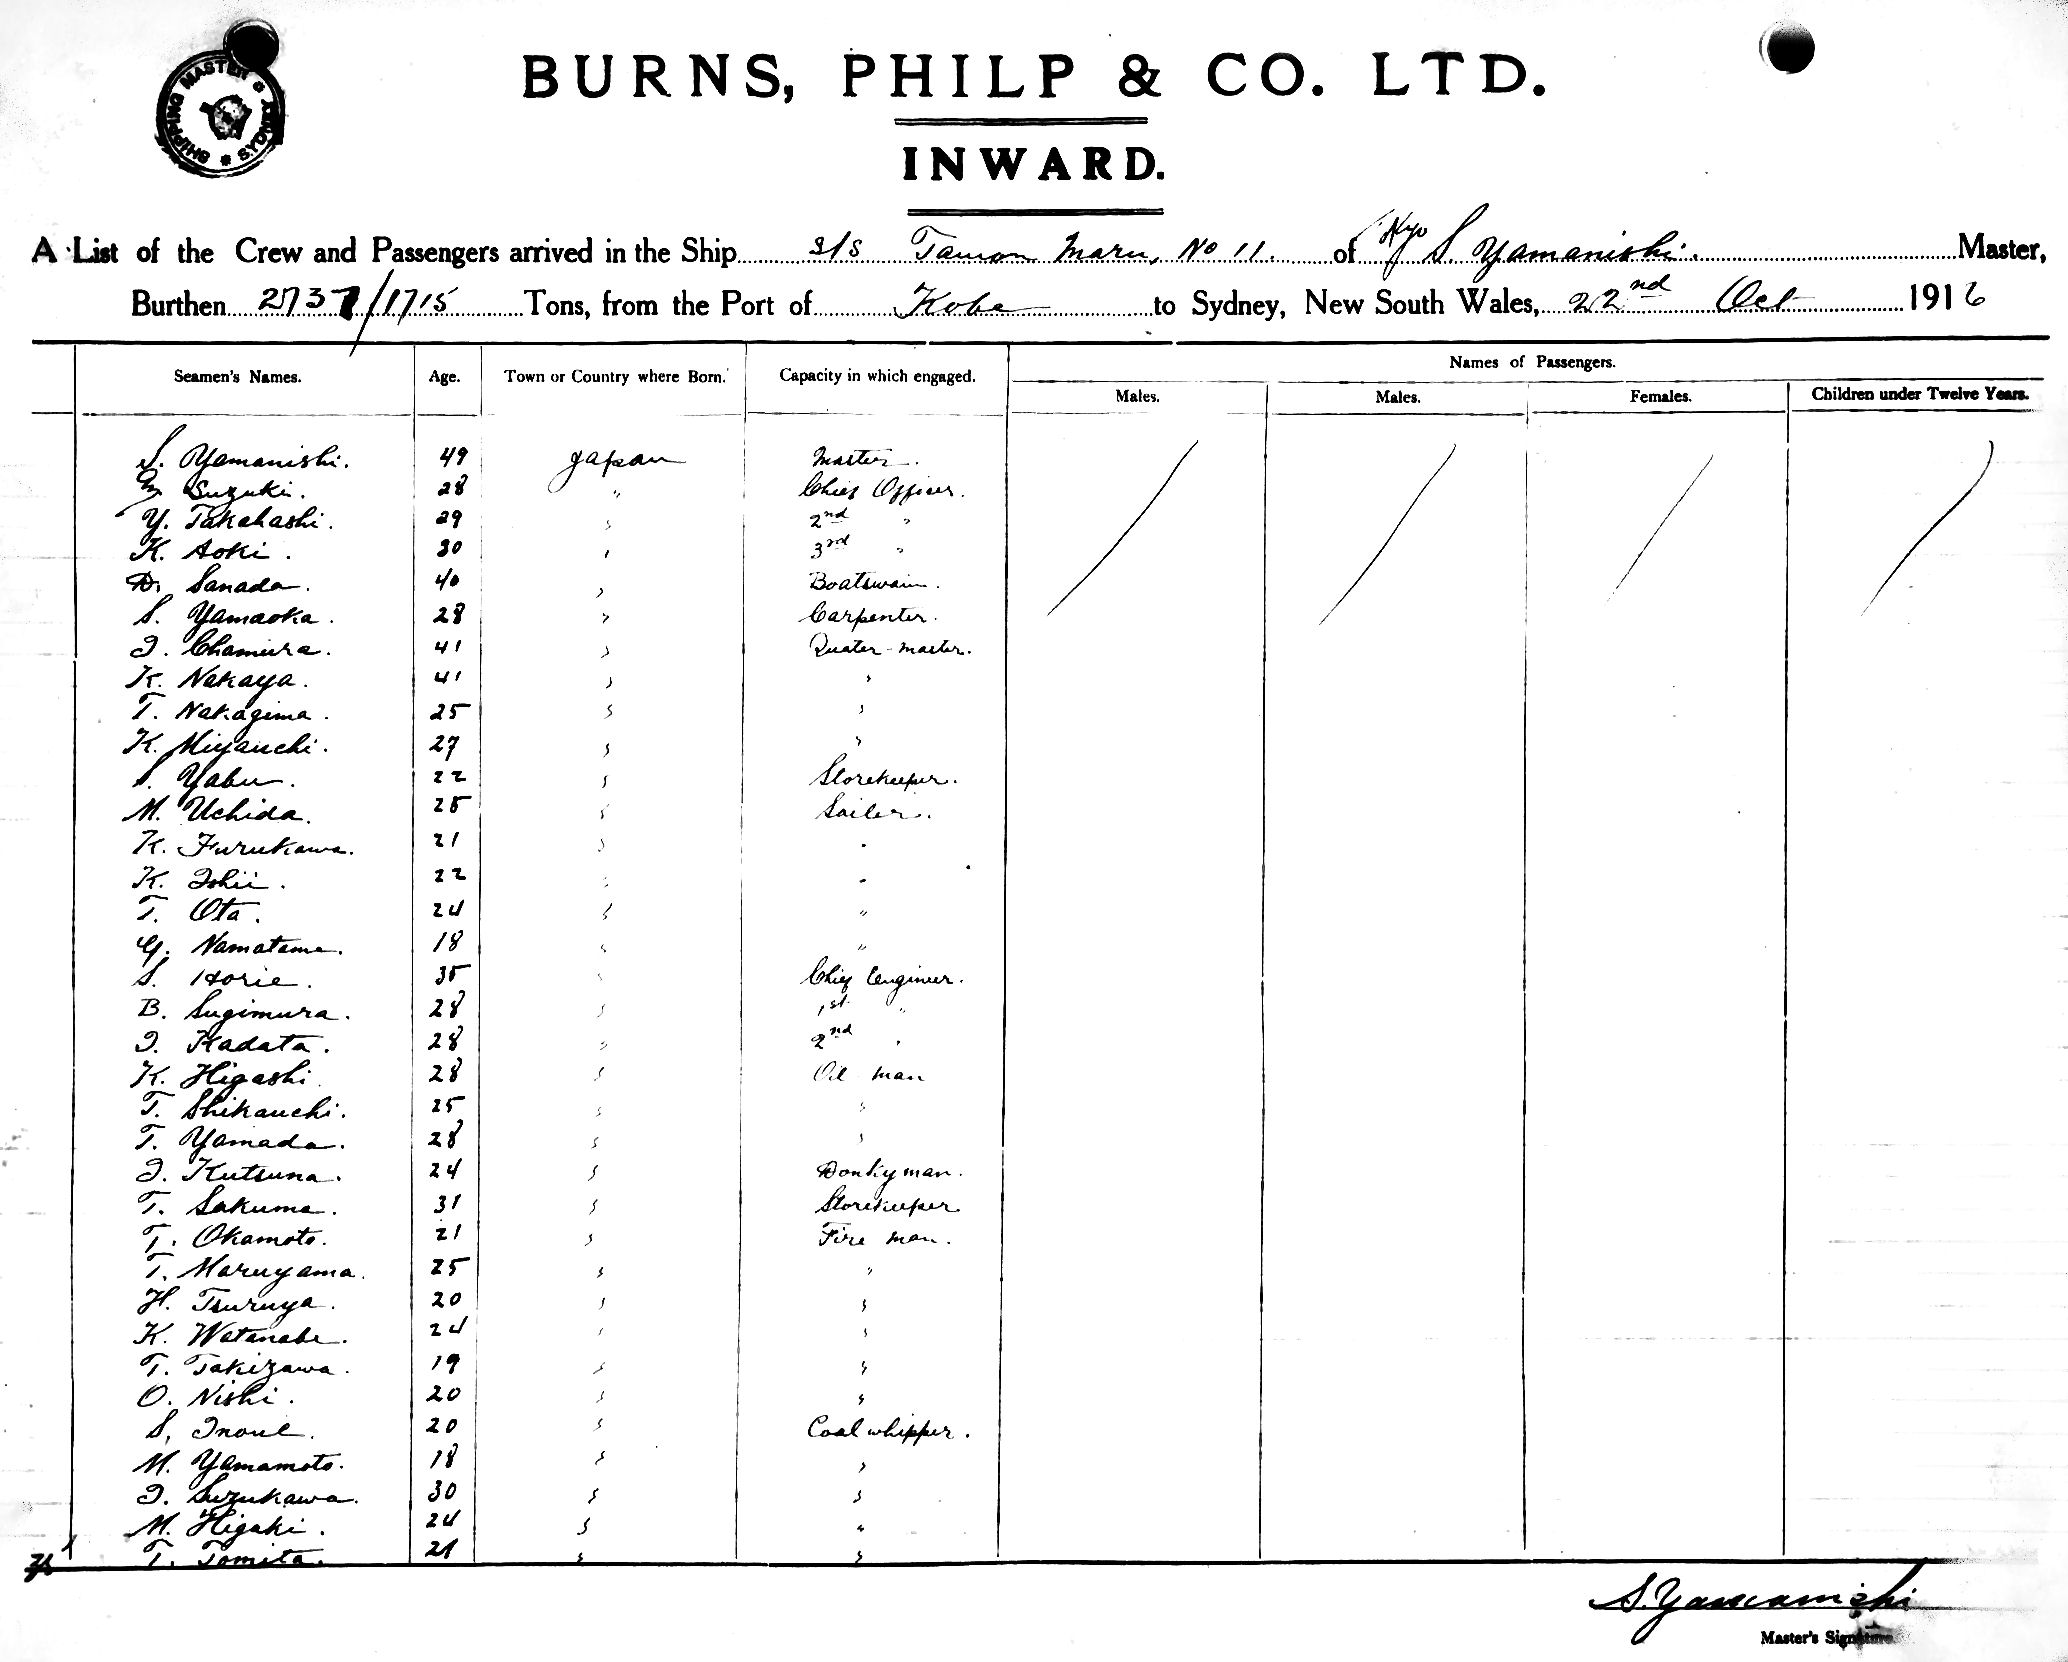 SHIPPING MASTER * SYDNEY *
BURNS, PHILP & CO. LTD.
INWARD.
A List of the Crew and Passengers arrived in the Ship S/S Tamon Maru, No 11. of S. Yamanishi. Master,
Burthen 2737/1715 Tons, from the Port of Kobe to Sydney, New South Wales, 22nd Oct 1916
Names of Passengers.
Seamen's Names. Age. Town or Country where Born. Capacity in which engaged. Males. Males. Females. Children under Twelve Years.
S. Yamanishi. 49 Japan Master.
Suzuki. 28 " Chief Officer.
Y. Takahashi. 29 " 2nd "
K. Aoki. 30 " 3rd "
D. Sanada. 40 " Boatswain.
S. Yamaoka. 28 " Carpenter.
I. Chamura. 41 " Quater-master.
K. Nakaya. 41 " "
T. Nakagima. 25 " "
K. Miyauchi. 27 " "
S. Yabu. 22 " Storekeeper.
M. Uchida. 25 " Sailer.
K. Furukawa. 21 " "
K. Ishii. 22 " "
T. Ota. 24 " "
G. Namatame. 18 " "
S. Horie. 35 " Chief Engineer.
B. Sugimura. 28 " 1st "
I. Kadata. 28 " 2nd "
K. Higashi 28 " Oil man
T. Shikauchi. 25 " "
T. Yamada. 28 " "
I. Kutsuna. 24 " Donkyman.
T. Sakuma. 31 " Storekeeper
T. Okamoto. 21 " Fire man.
T. Maruyama. 25 " "
H. Tsuruya. 20 " "
K. Watanabe. 24 " "
T. Takizawa. 19 " "
O. Nishi. 20 " "
S. Inoue. 20 " Coal whipper.
M. Yamamoto. 18 " "
I. Suzukawa. 30 " "
M. Higaki. 24 " "
T. Tomita. 21 " "
S. Yamanishi
Master's Signature